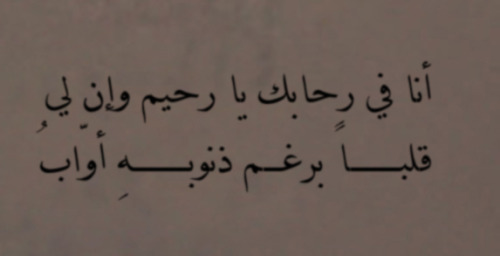 أنا في رحابك يا رحيم وإن لي
قلبــــاً برغــم ذنوبــــهِ أوّابُ